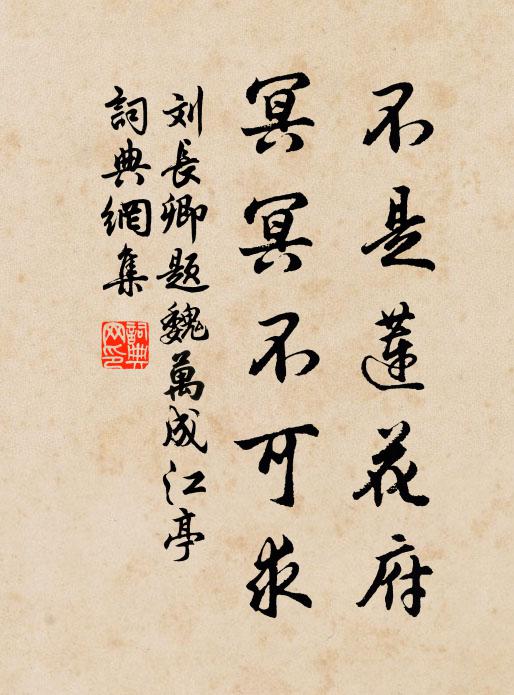 不是蓮花府
冥冥不可求
刘長卿題魏萬成江亭
詞典網集
詞典網印